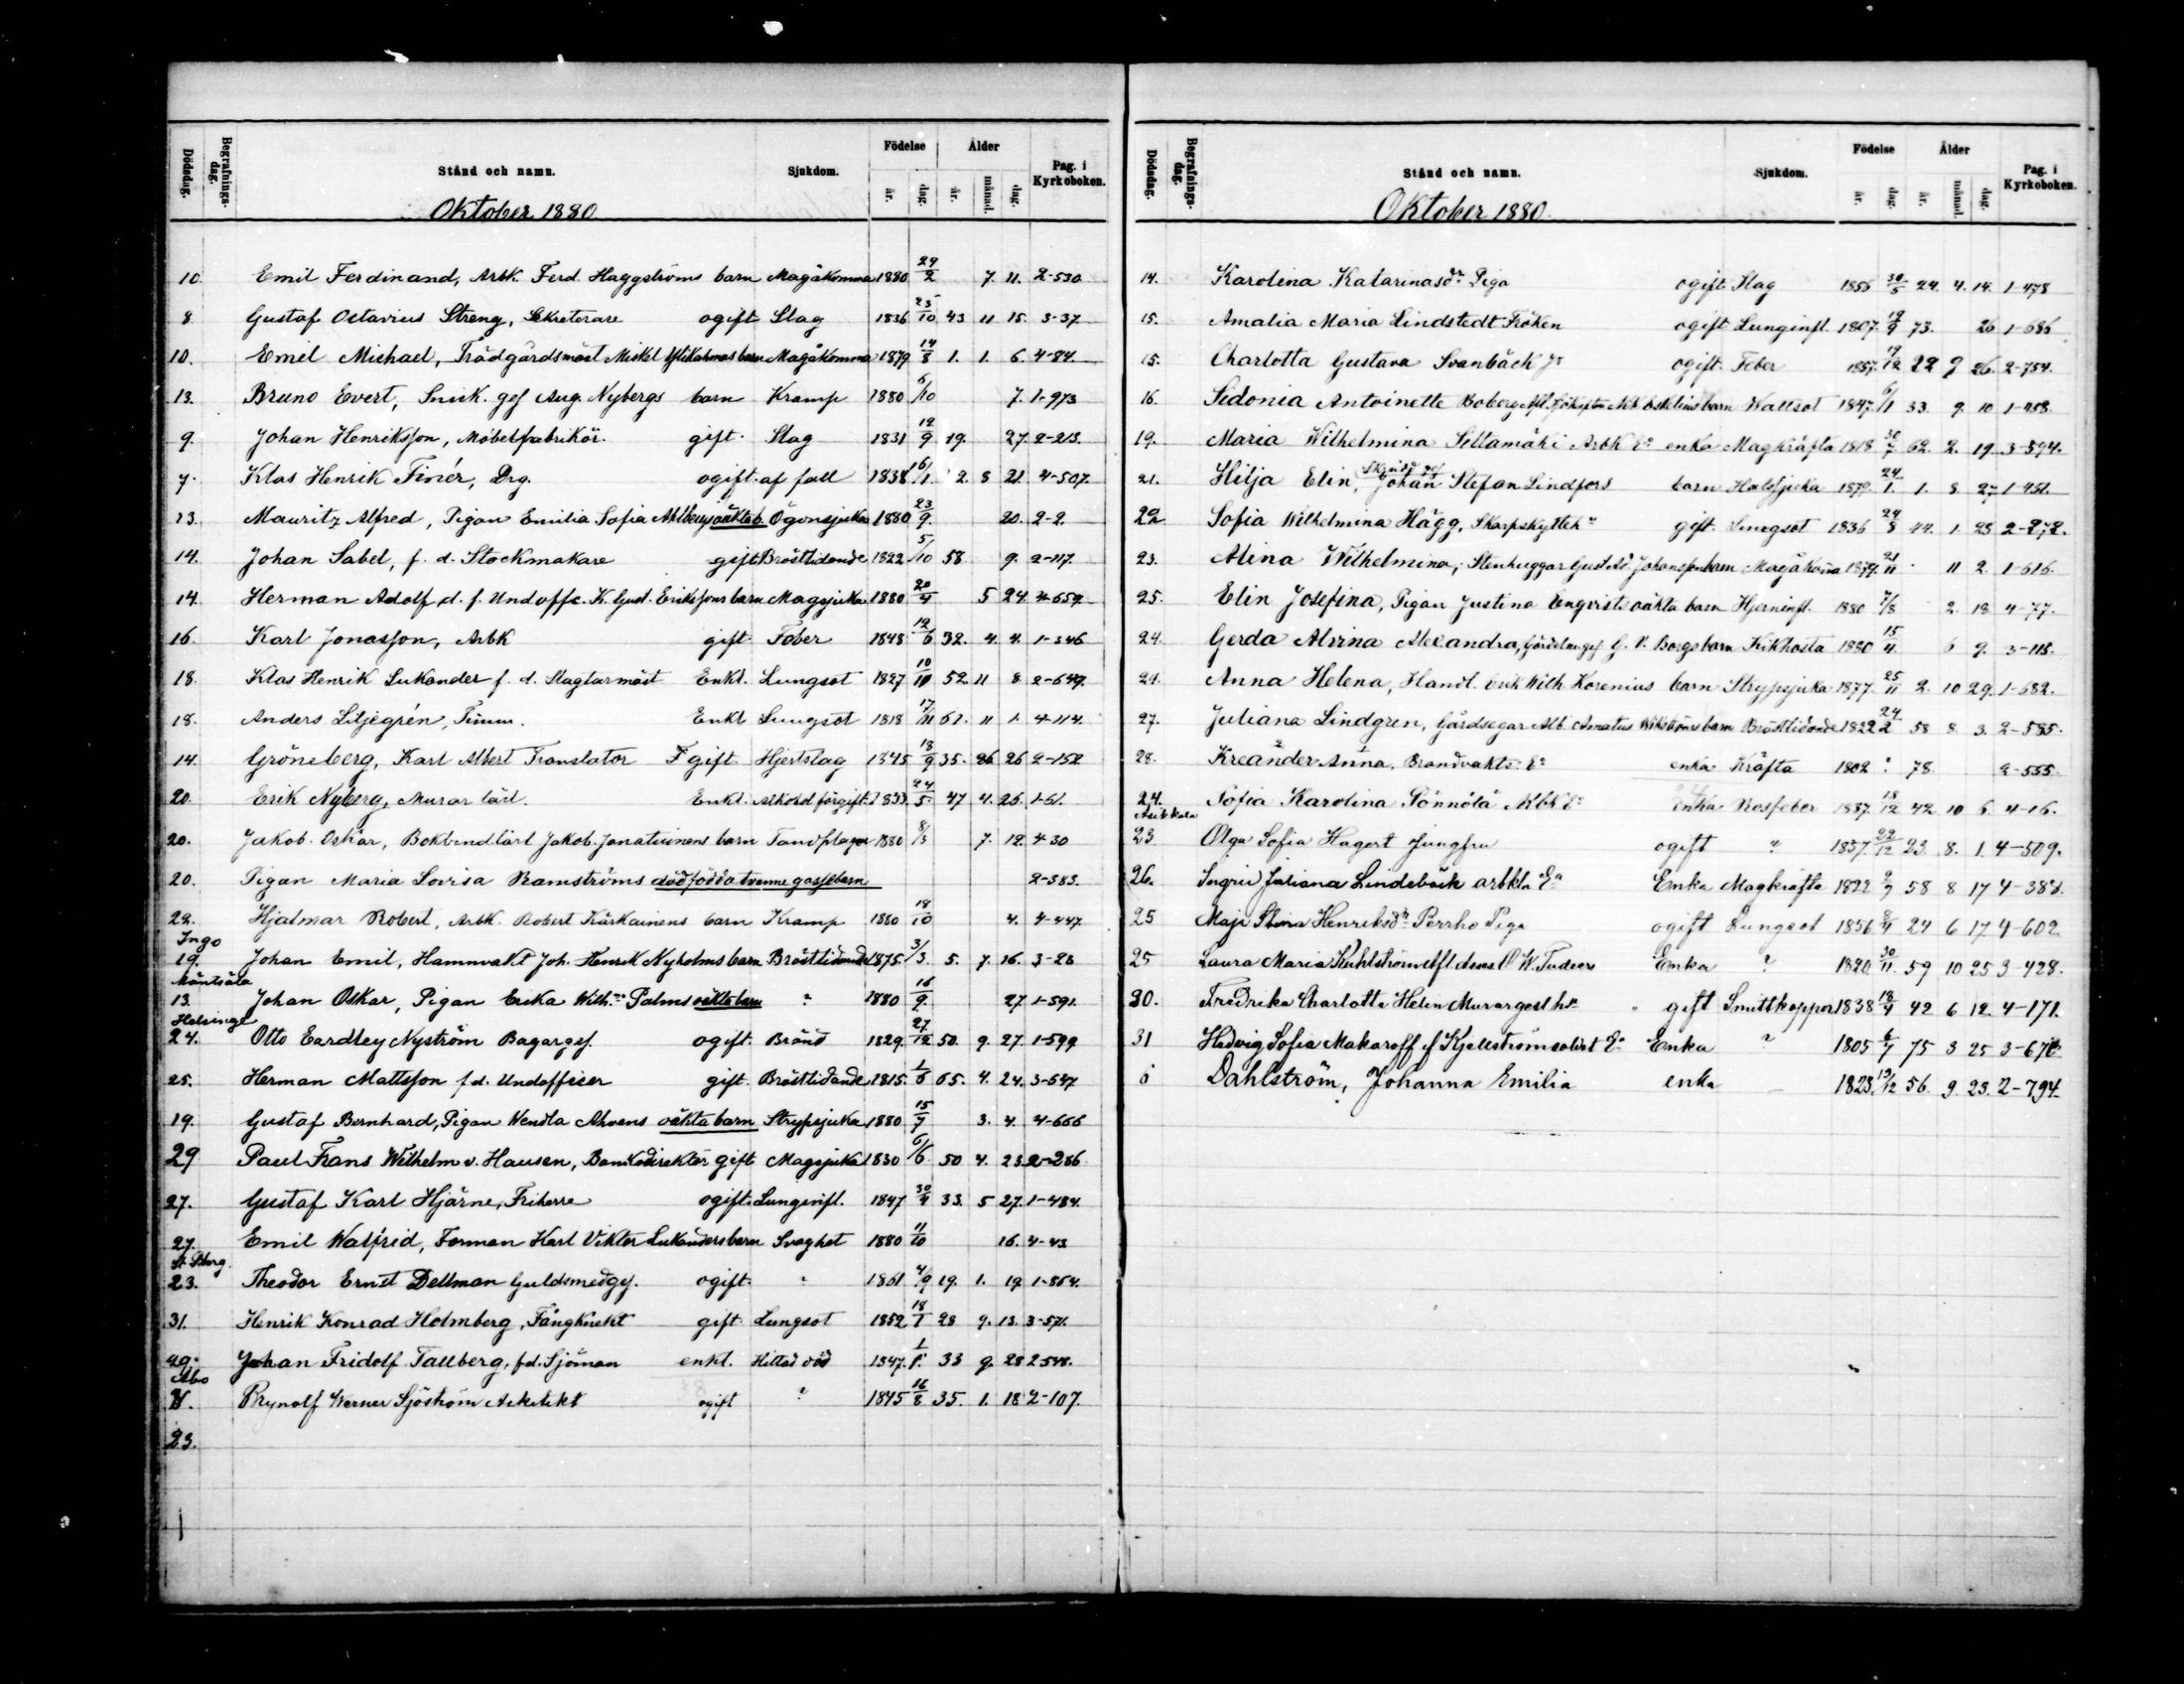 Dödsdag. Begrafnings-dag. Stånd och namn. Sjukdom. Födelse år. dag. Ålder år. månad. dag. Pag. i Kyrkoboken.
Oktober 1880
10. Emil Ferdinand, Arbk. Ferd. Haggströms barn Magåkomma 1880 29/2 7. 11. 2-530
8. Gustaf Octavius Streng, Sekreterare ogift Slag 1836 23/10 43 11 15. 3-37
10. Emil Michael, Trädgårdsmäst Mickel barn Magåkomma 1879 14/8 1. 1. 6. 4-84
13. Bruno Evert, Snick. ges Aug. Nybergs barn Kramp 1880 6/10 7. 1-973
9. Johan Henriksson, Möbelfabrikör. gift. Slag 1831 12/9 19. 27. 2-213.
7. Klas Henrik Finér, Drg. ogift. af fall 1838 16/1 2. 8 21. 4-507.
13. Mauritz Alfred, Pigan Emilia Sofia Ahlbergs oäkta b. Ögonsjuka 1880 23/9. 20. 2-2.
14. Johan Sabel, f. d. Stockmakare gift Bröstlidande 1822 5/10 58. 9. 2-117.
14. Herman Adolf, d. f. Undoffc. K. Gust. Erikssons barn Magsjuka 1880 20/4 5 24. 4-659.
16. Karl Jonasson, Arbk gift Feber 1848 12/6 32. 4. 4. 1-346
18. Klas Henrik Lukander f. d. Slagtarmäst Enkl. Lungsot 1827 10/11 52. 11 8. 2-649.
18. Anders Liljegrén, Timm. Enkl Lungsot 1818 17/11 61. 11 1. 4-114.
14. Gröneberg, Karl Albert Translator gift Hjertslag 1845 18/9 35. 26 26 2-152
20. Erik Nyberg, Murar lärl. Enkl. Alkohol förgift. 1833. 24/5 47 4. 26. 1-61.
20. Jakob Oskar, Bokbindlärl Jakob Jonatuinens barn Tandplagor 1880 8/3 7. 12. 4-30
20. Pigan Maria Lovisa Ramströms dödfödda tvenne gossebarn 2-383.
22. Hjalmar Robert, Arbk. Robert Kärkainens barn Kramp 1880 18/10 4. 4-447.
Ingo
19. Johan Emil, Hamnvakt Joh. Henrik Nyholms barn Bröstlidande 1875 3/3. 5. 7. 16. 3-28
Mäntsälä
13. Johan Oskar, Pigan Erika Wilh:na Palms oäkta barn " 1880 16/9. 27. 1-591.
Helsinge
24. Otto Eardley Nyström Bagarges. ogift. Bränd 1829. 27/12 50. 9. 27. 1-599
25. Herman Mattsson f.d. Undofficer gift. Bröstlidande 1815. 1/6 65. 4. 24. 3-647
19. Gustaf Bernhard, Pigan Wendla Ahvens oäkta barn Strypsjuka 1880 15/7 3. 4. 4-666
29 Paul Frans Wilhelm v. Hausen, Bankodirektör gift Magsjuka 1830 6/6 50 4. 23. 2-286
27. Gustaf Karl Hjärne, Friherre ogift. Lunginfl. 1847 30/4 33. 5 27. 1-484.
27. Emil Walfrid, Forman Karl Viktor Lukanders barn Svaghet 1880 11/10 16. 4-43
St. Pbrg.
23. Theodor Ernst Dellman Guldsmedges. ogift. " 1861 4/9 19. 1. 19. 1-864.
31. Henrik Konrad Holmberg, Fångknekt gift Lungsot 1852 18/1 28 9. 13. 3-571.
29. Johan Fridolf Tallberg, f.d. Sjöman enkl. Hittad död 1847. 1/1. 33 9. 28 2-548.
Åbo
Brynolf Werner Sjöström Arkitekt ogift " 1845 16/8 35. 1. 18 2-107.
23.
Dödsdag. Begrafnings-dag. Stånd och namn. Sjukdom. Födelse år. dag. Ålder år. månad. dag. Pag. i Kyrkoboken.
Oktober 1880
14. Karolina Katarinasdr. Piga ogift Slag 1856 30/5 24. 4. 14. 1-478
15. Amalia Maria Lindstedt Fröken ogift Lunginfl. 1807. 19/9 73. 26 1-686
15. Charlotta Gustava Svanbäck ogift. Feber 1857. 19/12 22 9 26. 2-754.
16. Sidonia Antoinette Boberg barn Wattsot 1847. 6/1 33. 9. 10 1-458.
19. Maria Wilhelmina Siltamäki Arbk Ea enka Magkräfta 1818 30/7 62. 2. 19 3-594.
21. Hilja Elin, Johan Stefan Lindfors barn Halssjuka 1879. 24/1. 1. 8 27. 1-451.
22 Sofia Wilhelmina Hägg, Skarpskytteh gift Lungsot 1836 24/8 44. 1 28 2-272.
23. Alina Wilhelmina, Stenhuggar Gustafs Johanssons barn Magåkoma 1879. 21/11 11 2. 1-616.
25. Elin Josefina, Pigan Justina Enqvists oäkta barn Hjerninfl. 1880 7/8 2. 18. 4-77.
24. Gerda Alvina Alexandra, G. V. Borgs barn Kikhosta 1880 15/4. 6 9. 3-118.
24. Anna Helena, Handl. Erik Wilh Korenius barn Strypsjuka 1877. 25/11 2. 10 29. 1-682.
27. Juliana Lindgren, Gårdsegar Alb Amatus Wikströms barn Bröstlidande 1822 24/2 58 8. 3. 2-585.
28. Kreander Anna. Brandvakts. Ea enka Kräfta 1802 " 78. 2-555.
24. Sofia Karolina Sönnölä Arbk Ea enka Rosfeber 1837. 18/12 42 10 6. 4-16.
Asikkala
23. Olga Sofia Hagert Jungfru ogift " 1857. 22/12 23. 8. 1. 4-509.
26. Ingrid Juliana Lindebäck arbkla Ea Enka Magkräfta 1822 9/7 58 8 17 4-388.
25 Maja Stina Henriksdr Perrho Piga ogift Lungsot 1856 8/4 24 6 17 4-602
25 Laura Maria Kuhlström O W. Tudeers Enka " 1820. 30/11. 59 10 25 3-428.
30. Fredrika Charlotta Helin Murargesl hu gift Smittkoppor 1838 18/4 42 6 12. 4-171.
31 Hedvig Sofia Makaroff f Kjellström Ea Enka " 1805 6/7 75 3 25 3-670
5 Dahlström, Johanna Emilia enka 1823. 13/12 56. 9. 23. 2-794.